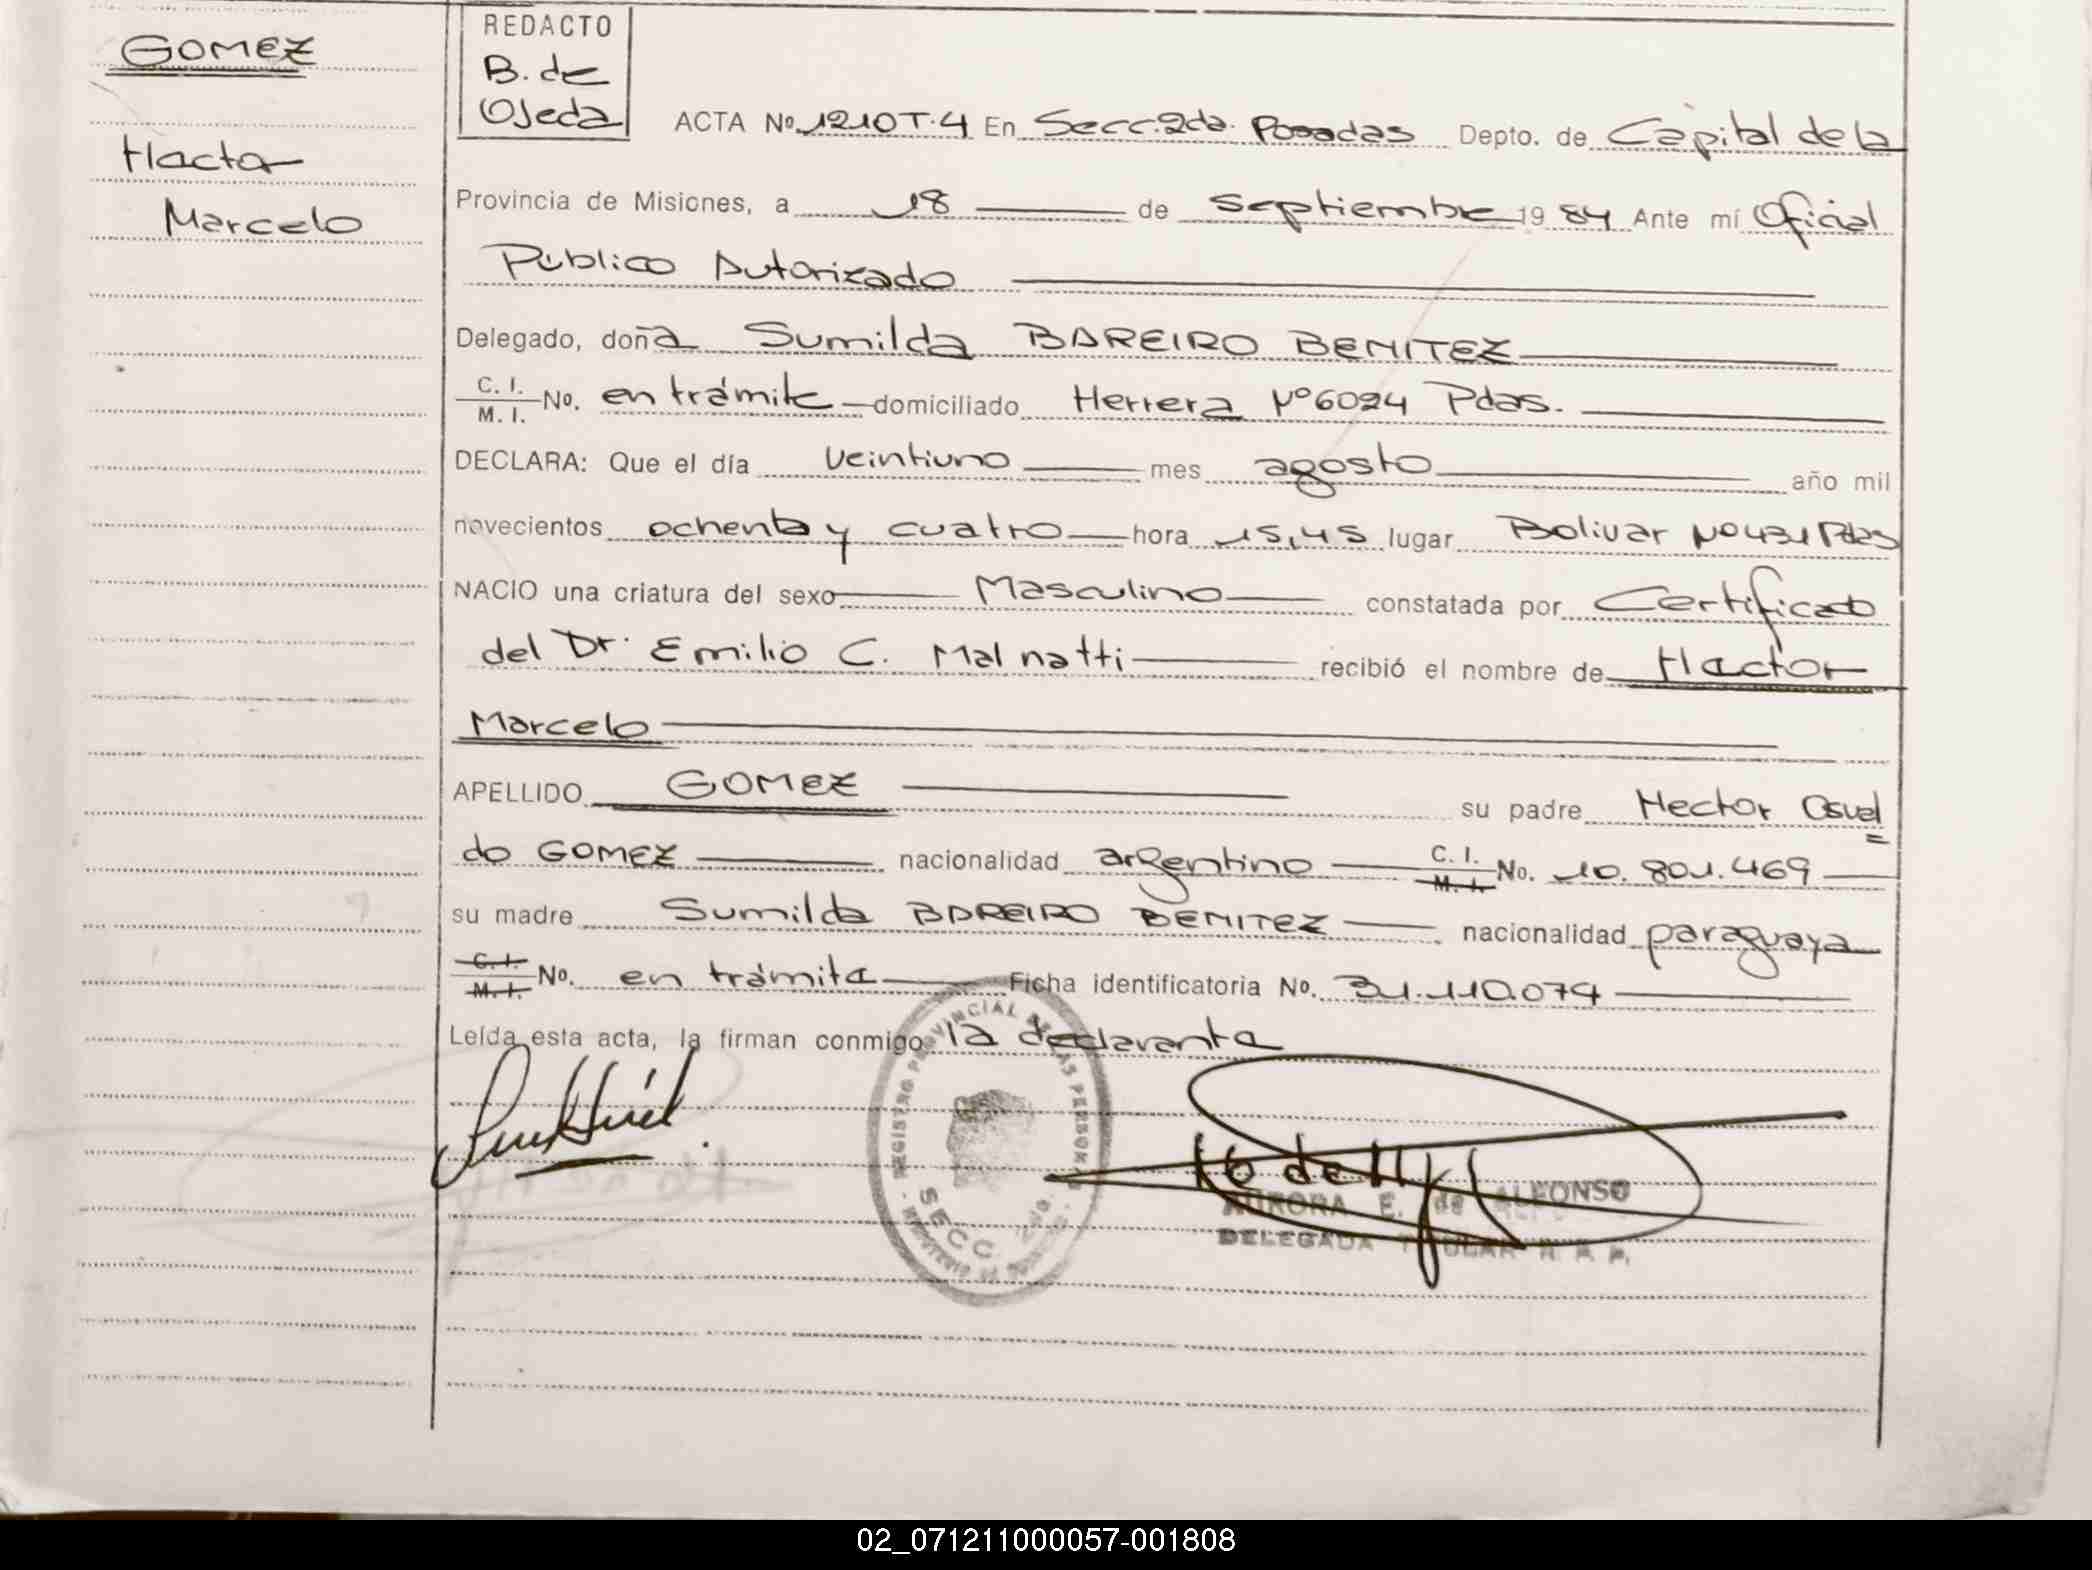 GOMEZ
Hector
Marcelo
REDACTO
B. de
Ojeda
ACTA No. 1210 T. 4 En Secc. 2da. Posadas Depto. de Capital de la
Provincia de Misiones, a 18 de septiembre 19 84 Ante mí Oficial
Público Autorizado
Delegado, doña Sumilda BAREIRO BENITEZ
C. I. M. I. No. en trámite domiciliado Herrera Nº 6024 Pdas.
DECLARA: Que el día veintiuno mes agosto año mil
novecientos ochenta y cuatro hora 15,45 lugar Bolivar Nº 431 Pdas
NACIO una criatura del sexo Masculino constatada por Certificado
del Dr. Emilio C. Malnatti recibió el nombre de Hector
Marcelo
APELLIDO GOMEZ su padre Hector Osval
do GOMEZ nacionalidad argentino C. I. M. I. No. 10.801.469
su madre Sumilda BAREIRO BENITEZ nacionalidad paraguaya
C. I. M. I. No. en trámite Ficha identificatoria No. 31.110.074
Leída esta acta, la firman conmigo la declarante
REGISTRO PROVINCIAL DE LAS PERSONAS
SECC. 2da.
AURORA E. de ALFONSO
DELEGADA TITULAR R. P. P.
02_071211000057-001808